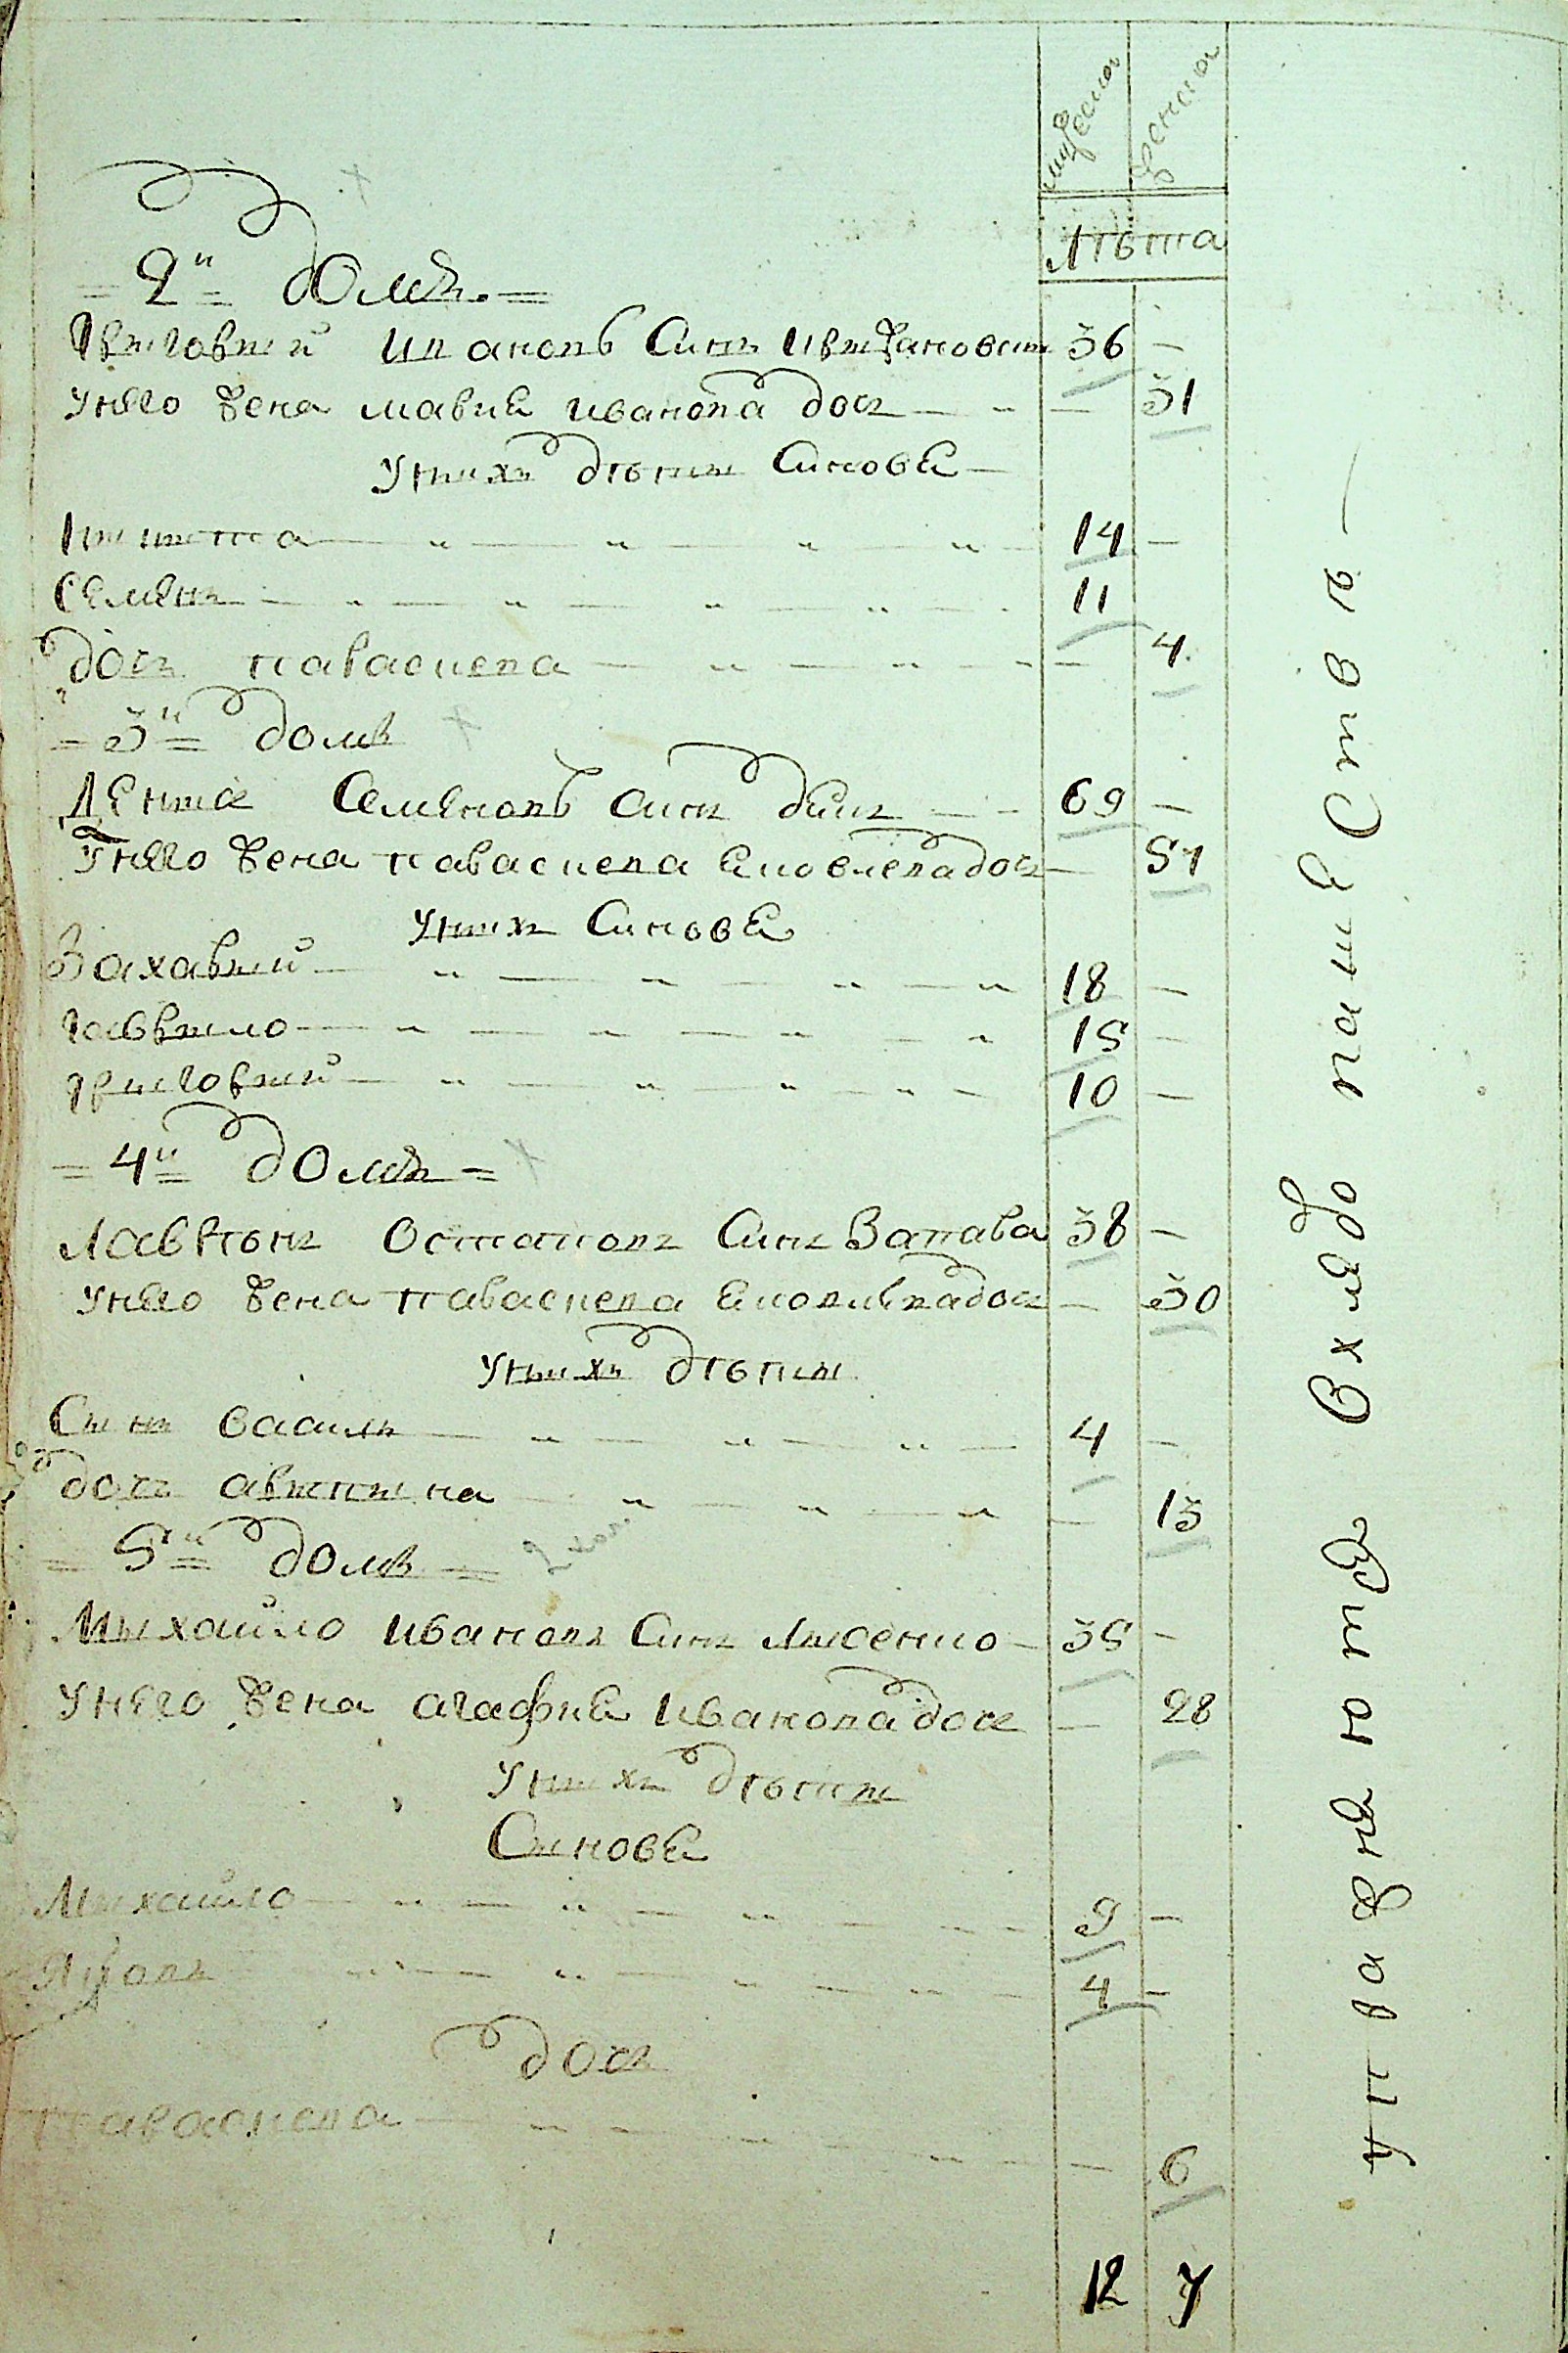 мужеска женска
Лѣта
= 2й = домъ. =
Григорий Ивановъ Синъ 36 —
Унего жена Мария Иванова доч — 31
Унихъ дѣти Синове —
Никита — 14 —
Семенъ — 11
доч Параскева — 4.
= 3й = домъ
Семеновъ Синъ 69 —
Унего жена Параскева доч — 51
Унихъ Синове
Захарий — 18 —
Гаврило — 15 —
Григорий — 10 —
= 4й = домъ =
Лаврѣнъ Остаповъ Синъ 38 —
Унего жена Параскева доч — 30
Унихъ дѣти
Синъ Василь — 4 —
доч — 13
= 5й = домъ =
Михайло Ивановъ Синъ Лисенко — 35 —
Унего жена Агафия Иванова доч — 28
Унихъ дѣти
Синове
Михайло — 9 —
Яковъ — 4 —
доч
Параскева — 6
12 7
упражняютъ в хлѣбопашествѣ —